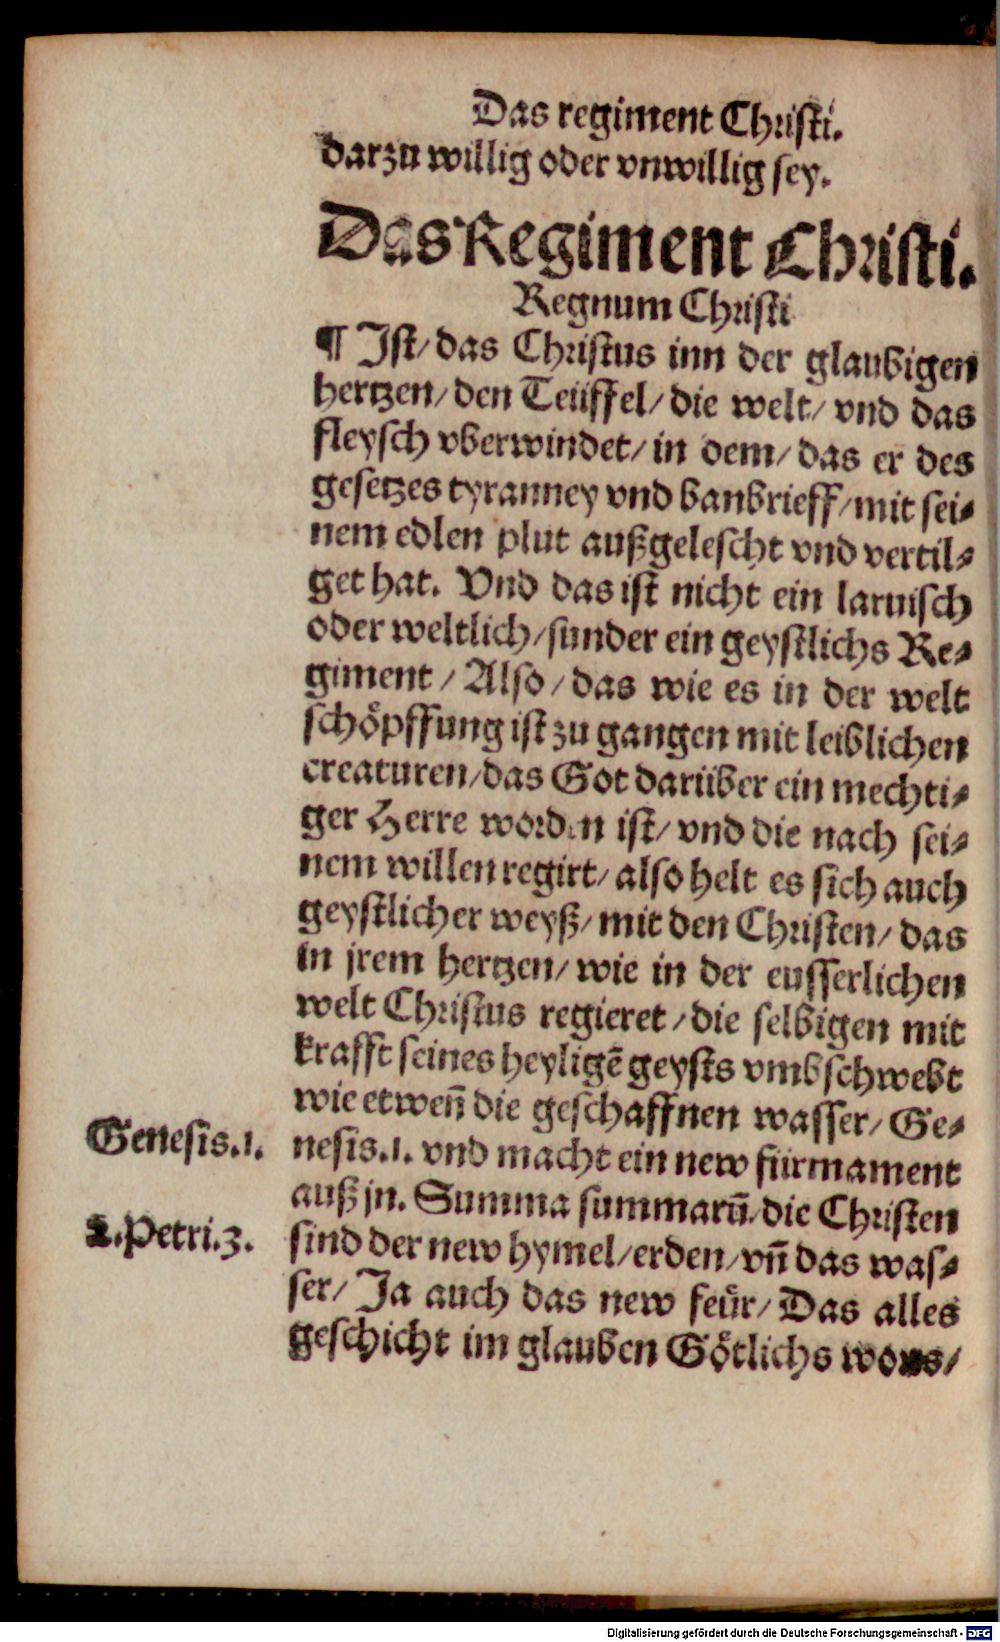 Das regiment Christi.
darzu willig oder vnwillig sey.
Das Regiment Christi.
Regnum Christi
¶ Ist/ das Christus inn der glaubigen
hertzen/ den Teüffel/ die welt/ vnd das
fleysch vberwindet/ in dem/ das er des
gesetzes tyranney vnd banbrieff/ mit sei⸗
nem edlen plut außgelescht vnd vertil⸗
get hat. Vnd das ist nicht ein laruisch
oder weltlich/ sunder ein geystlichs Re⸗
giment/ Also/ das wie es in der welt
schöpffung ist zu gangen mit leiblichen
creaturen/ das Got darüber ein mechti⸗
ger Herre worden ist/ vnd die nach sei⸗
nem willen regirt/ also helt es sich auch
geystlicher weyß/ mit den Christen/ das
in jrem hertzen/ wie in der eusserlichen
welt Christus regieret/ die selbigen mit
krafft seines heyligẽ geysts vmbschwebt
wie etweñ die geschaffnen wasser/ Ge⸗
Genesis.1.
nesis.1. vnd macht ein new fürmament
auß jn. Summa summarũ/ die Christen
2.Petri.3.
sind der new hymel/ erden/ vñ das was⸗
ser/ Ja auch das new feür/ Das alles
geschicht im glauben Götlichs worts/
Digitalisierung gefördert durch die Deutsche Forschungsgemeinschaft - DFG